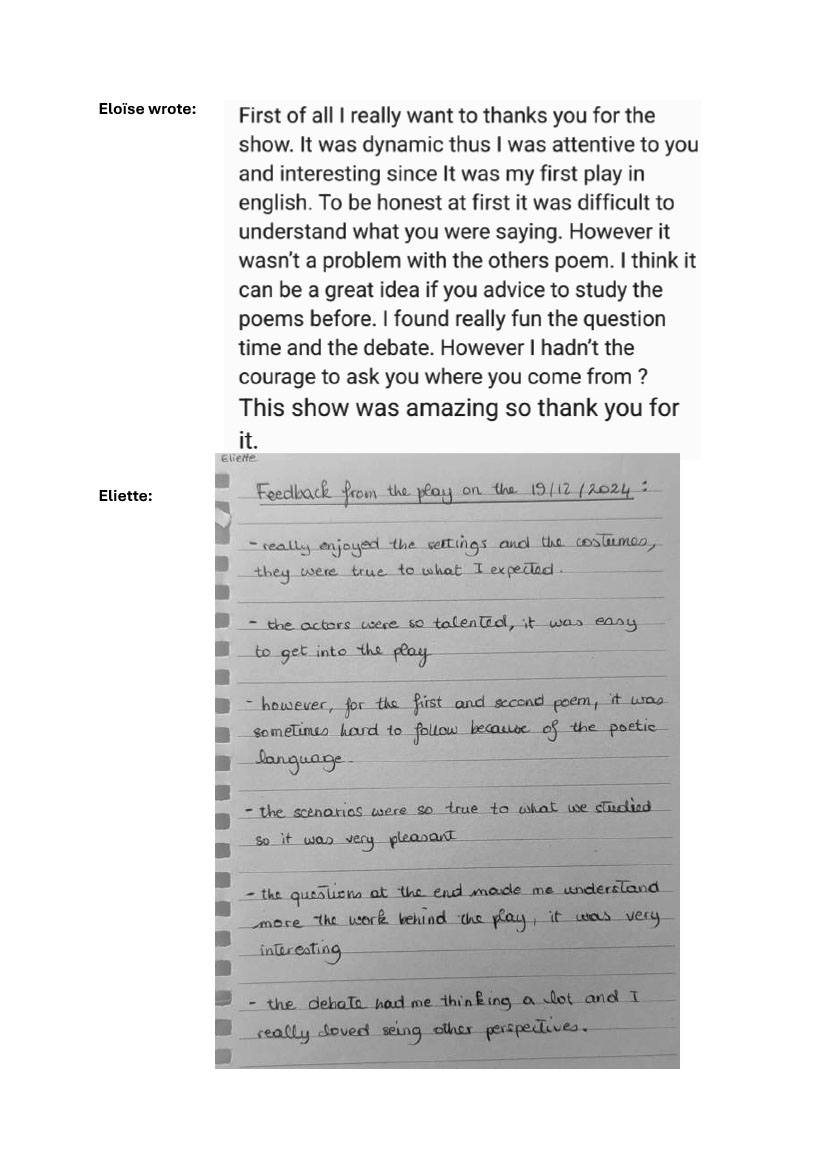 Eloïse wrote:
First of all I really want to thanks you for the
show. It was dynamic thus I was attentive to you
and interesting since It was my first play in
english. To be honest at first it was difficult to
understand what you were saying. However it
wasn't a problem with the others poem. I think it
can be a great idea if you advice to study the
poems before. I found really fun the question
time and the debate. However I hadn't the
courage to ask you where you come from ?
This show was amazing so thank you for
it.
Eliette:
Eliette
Feedback from the play on the 19/12/2024 :
- really enjoyed the settings and the costumes,
they were true to what I expected.
- the actors were so talented, it was easy
to get into the play
- however, for the first and second poem, it was
sometimes hard to follow because of the poetic
language.
- the scenarios were so true to what we studied
so it was very pleasant
- the questions at the end made me understand
more the work behind the play, it was very
interesting
- the debate had me thinking a lot and I
really loved seing other perspectives.